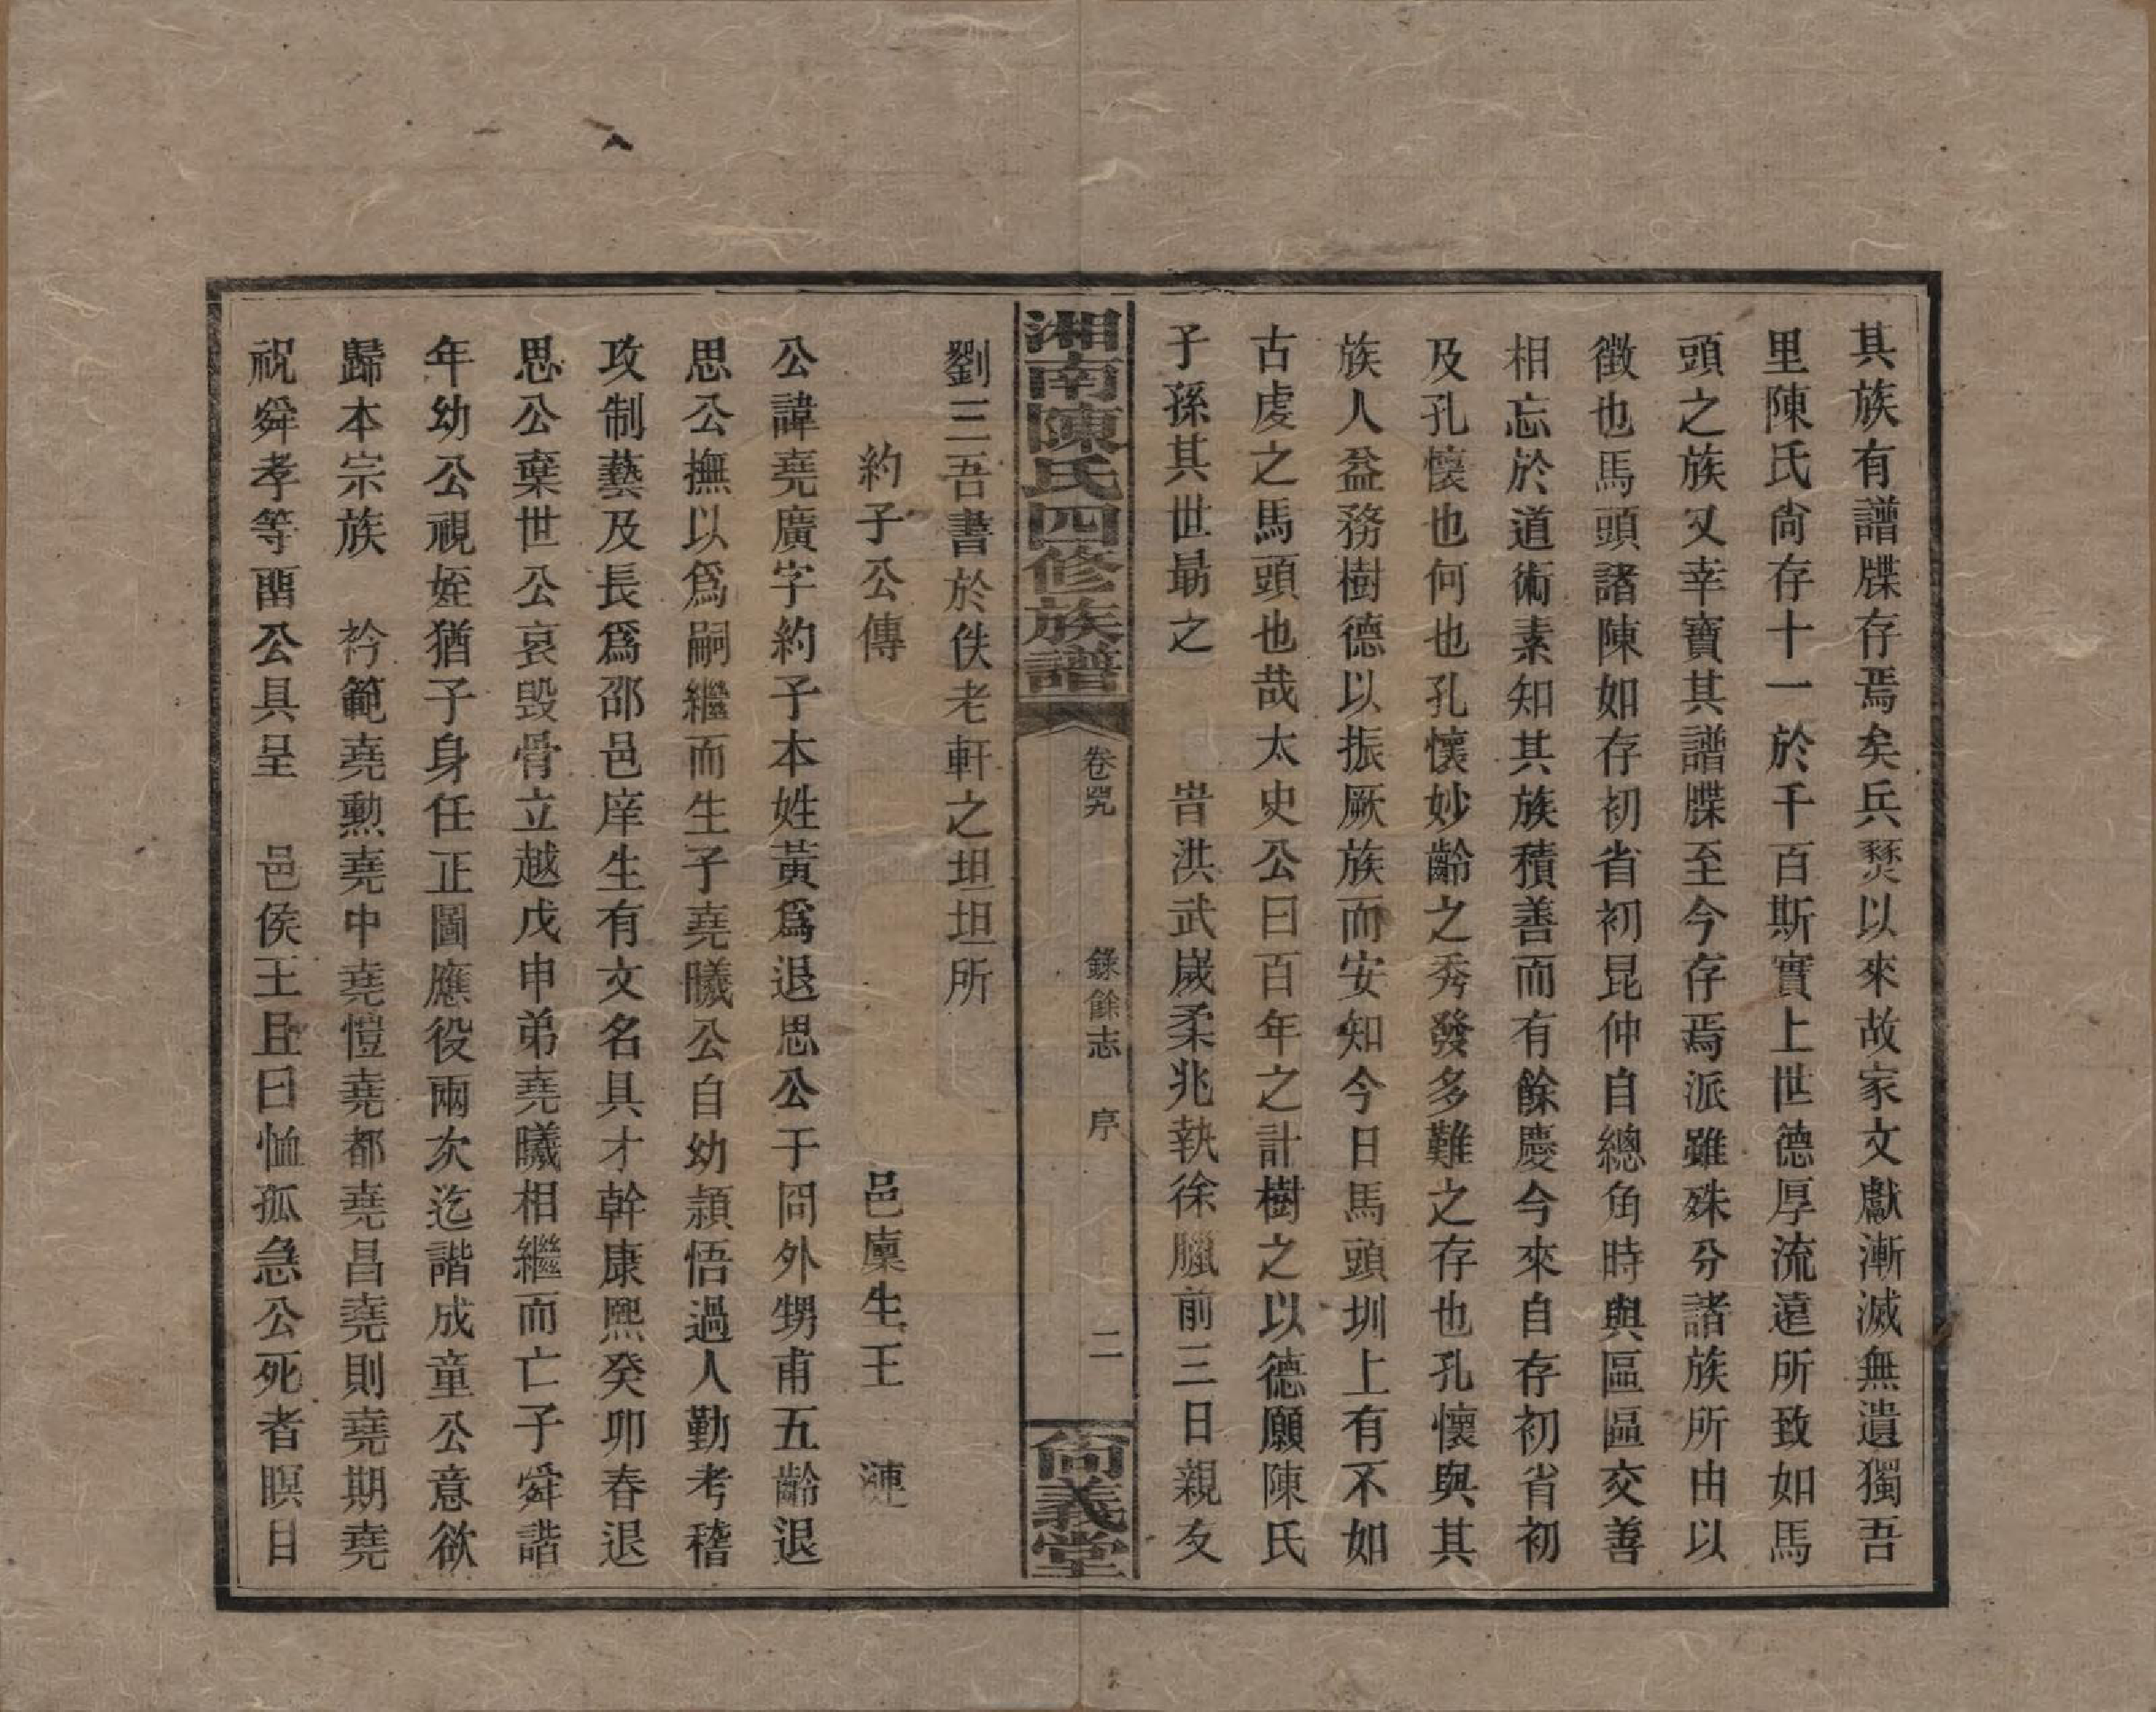 其族有譜牒存焉矣兵燹以來故家文獻漸滅無遺獨吾
里陳氏尙存十一於千百斯實上世德厚流遠所致如馬
頭之族又幸寶其譜牒至今存焉派雖殊分諸族所由以
徵也馬頭諸陳如存初省初昆仲自總角時與區區交善
相忘於道術素知其族積善而有餘慶今來自存初省初
及孔懷也何也孔懷妙齡之秀發多難之存也孔懷與其
族人益務樹德以振厥族而安知今日馬頭圳上有不如
古虔之馬頭也哉太史公曰百年之計樹之以德願陳氏
子孫其世勗之　　旹洪武嵗柔兆執徐臘前三日親友
湘南陳氏四修族譜　卷　錄餘志　序　二　尙義堂
劉三吾書於佚老軒之坦坦所
約子公傳　　　邑廩生王　漣
公諱堯廣字約予本姓黃爲退思公于岡外甥甫五齡退
思公撫以爲嗣繼而生子堯曦公自幼穎悟過人勤考稽
攻制藝及長爲邵邑庠生有文名具才幹康熙癸卯春退
思公棄世公哀毀骨立越戊申弟堯曦相繼而亡子舜諧
年幼公視姪猶子身任正圖應役兩次迄諧成童公意欲
歸本宗族　衿範堯勲堯中堯愷堯都堯昌堯則堯期堯
祝舜孝等畱公具呈　邑侯王且曰恤孤急公死者瞑目